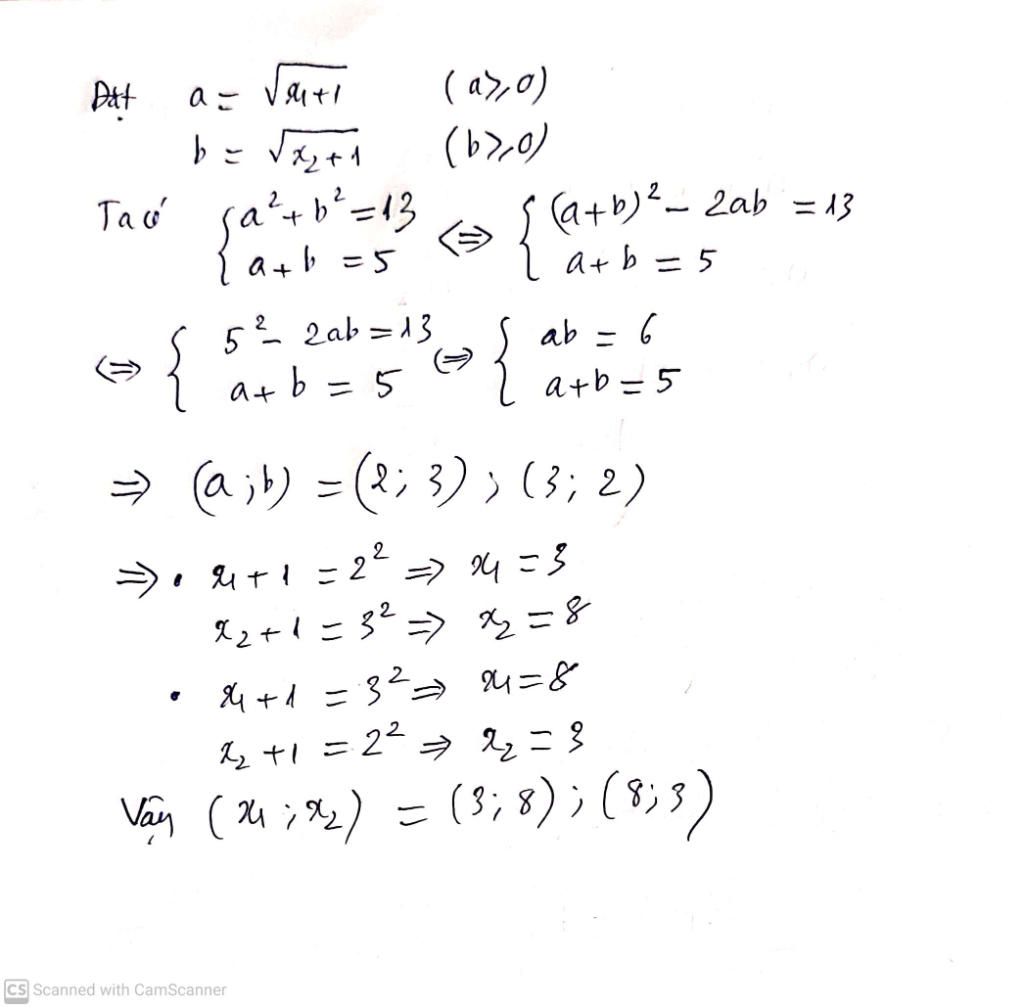 Đặt a = √(x₁+1) (a≥0)
b = √(x₂+1) (b≥0)
Ta có { a²+b²=13 ; a+b = 5 <=> { (a+b)² - 2ab = 13 ; a+b = 5
<=> { 5² - 2ab = 13 ; a+b = 5 <=> { ab = 6 ; a+b = 5
=> (a;b) = (2; 3) ; (3; 2)
=> • x₁+1 = 2² => x₁ = 3
x₂+1 = 3² => x₂ = 8
• x₁+1 = 3² => x₁ = 8
x₂+1 = 2² => x₂ = 3
Vậy (x₁ ; x₂) = (3; 8) ; (8; 3)
CS Scanned with CamScanner